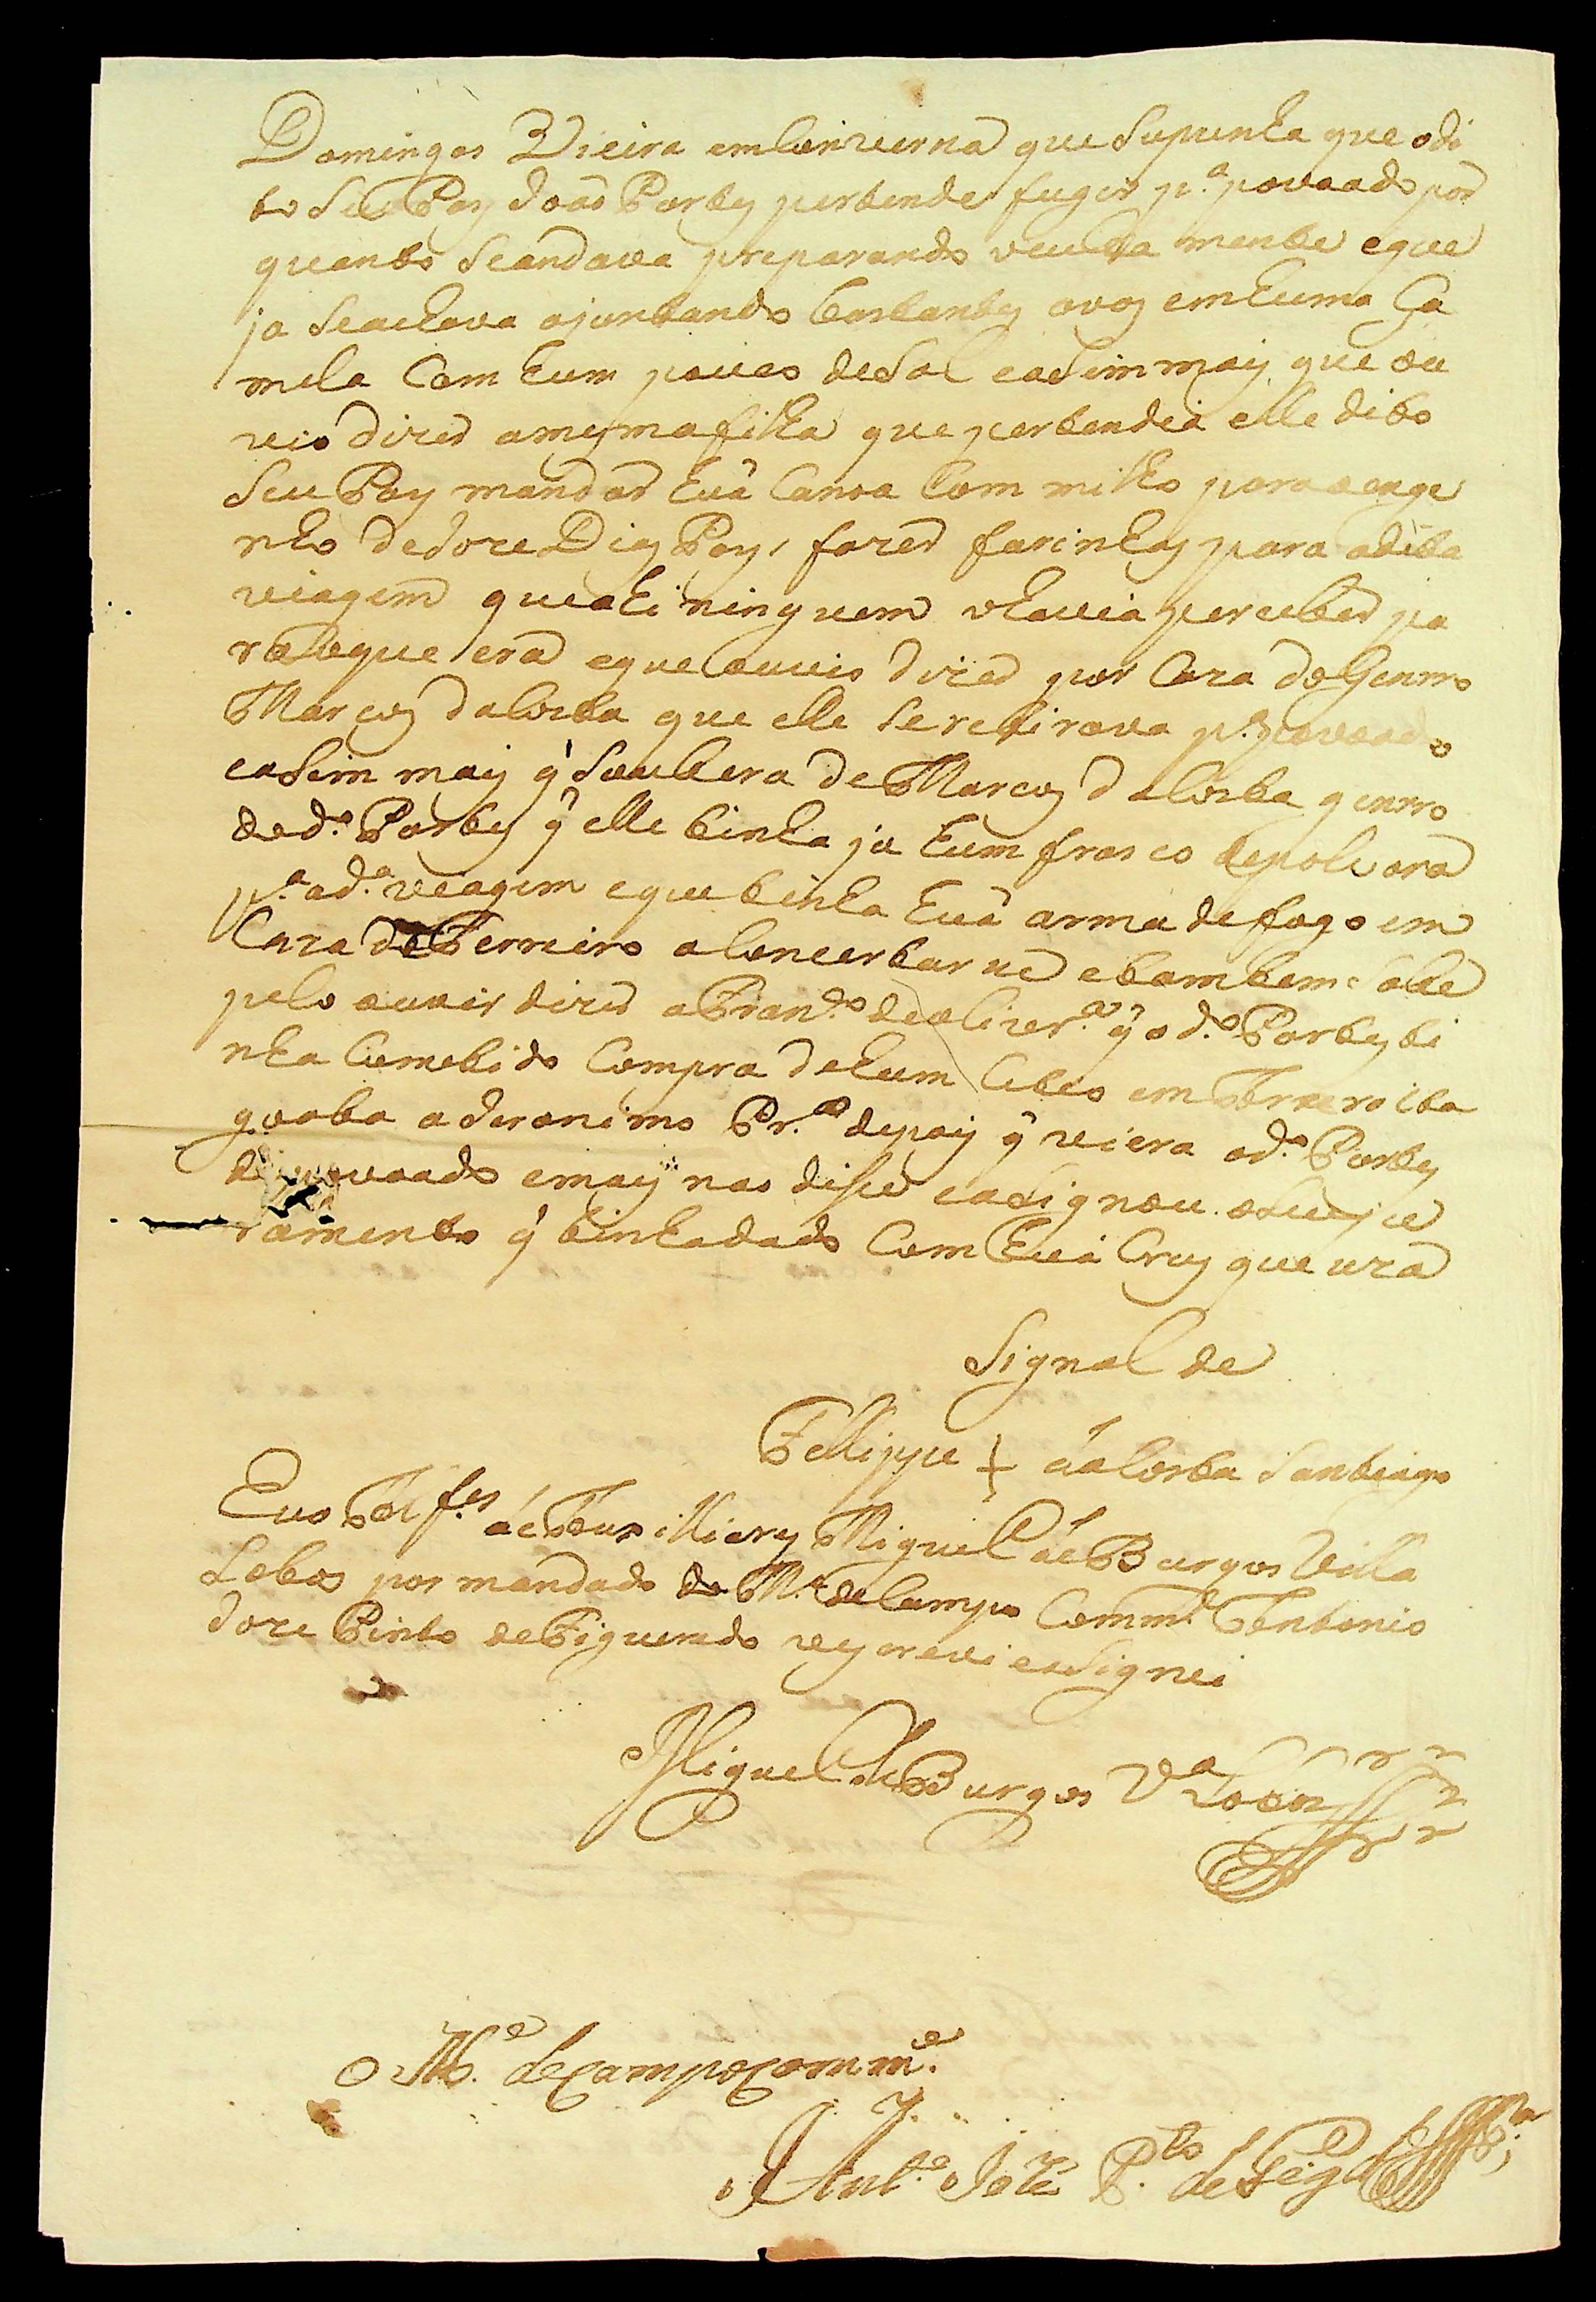 Domingos Vieira em Converna que Supunha que odi
to Seu Pay Joaõ Portes pertende fugir p.ª povoado por
quanto Seandava preparando ocultamente eque
ja Seachava ajuntando bastantes ovos em huma Ga
mela Com hum pouco deSal eaSim mais que ou
vio dizer amesma filha que pertendia elle dito
Seu Pay mandar huã Canoa Com milho para oenge
nho deJoze Dias Pays fazer farinhas para adita
viagem que ali ninguem ohavia perceber pa
ra oque era eque ouvio dizer por Caza doGenrro
Marcos daCosta que elle Seretirava p.ª povoado
eaSim mais q̃ Soubera de Marcos daCosta genrro
dod.º Portes q̃ elle tinha ja hum frasco depolvora
p.ª ad.ª viagem eque tinha huã arma defogo em
Caza doFerreiro aConcertarse etambem Sabe
pelo ouvir dizer aFran.co deolivr.ª q̃ od.º Portes ti
nha Cometido Compra dehum Citio em
goaba aJeronimo Pr.ª depois q̃ viera od.º Portes
de povoado emais nao disse easignou oSeu ju
ramento q̃ tinhadado Com huã Crus que uza
Signal de
Fellippe + daCosta Santiago
Euo Alferes deAuxilliares Miguel deBurgos Villa
Lobos por mandado do M.e deCampo Comm.e Antonio
Joze Pinto deFigueredo oescrevi easignei
Miguel deBurgos V.ª Lobos
O M.e deCampo Comm.e
Ant.º Joze P.to deFig.do